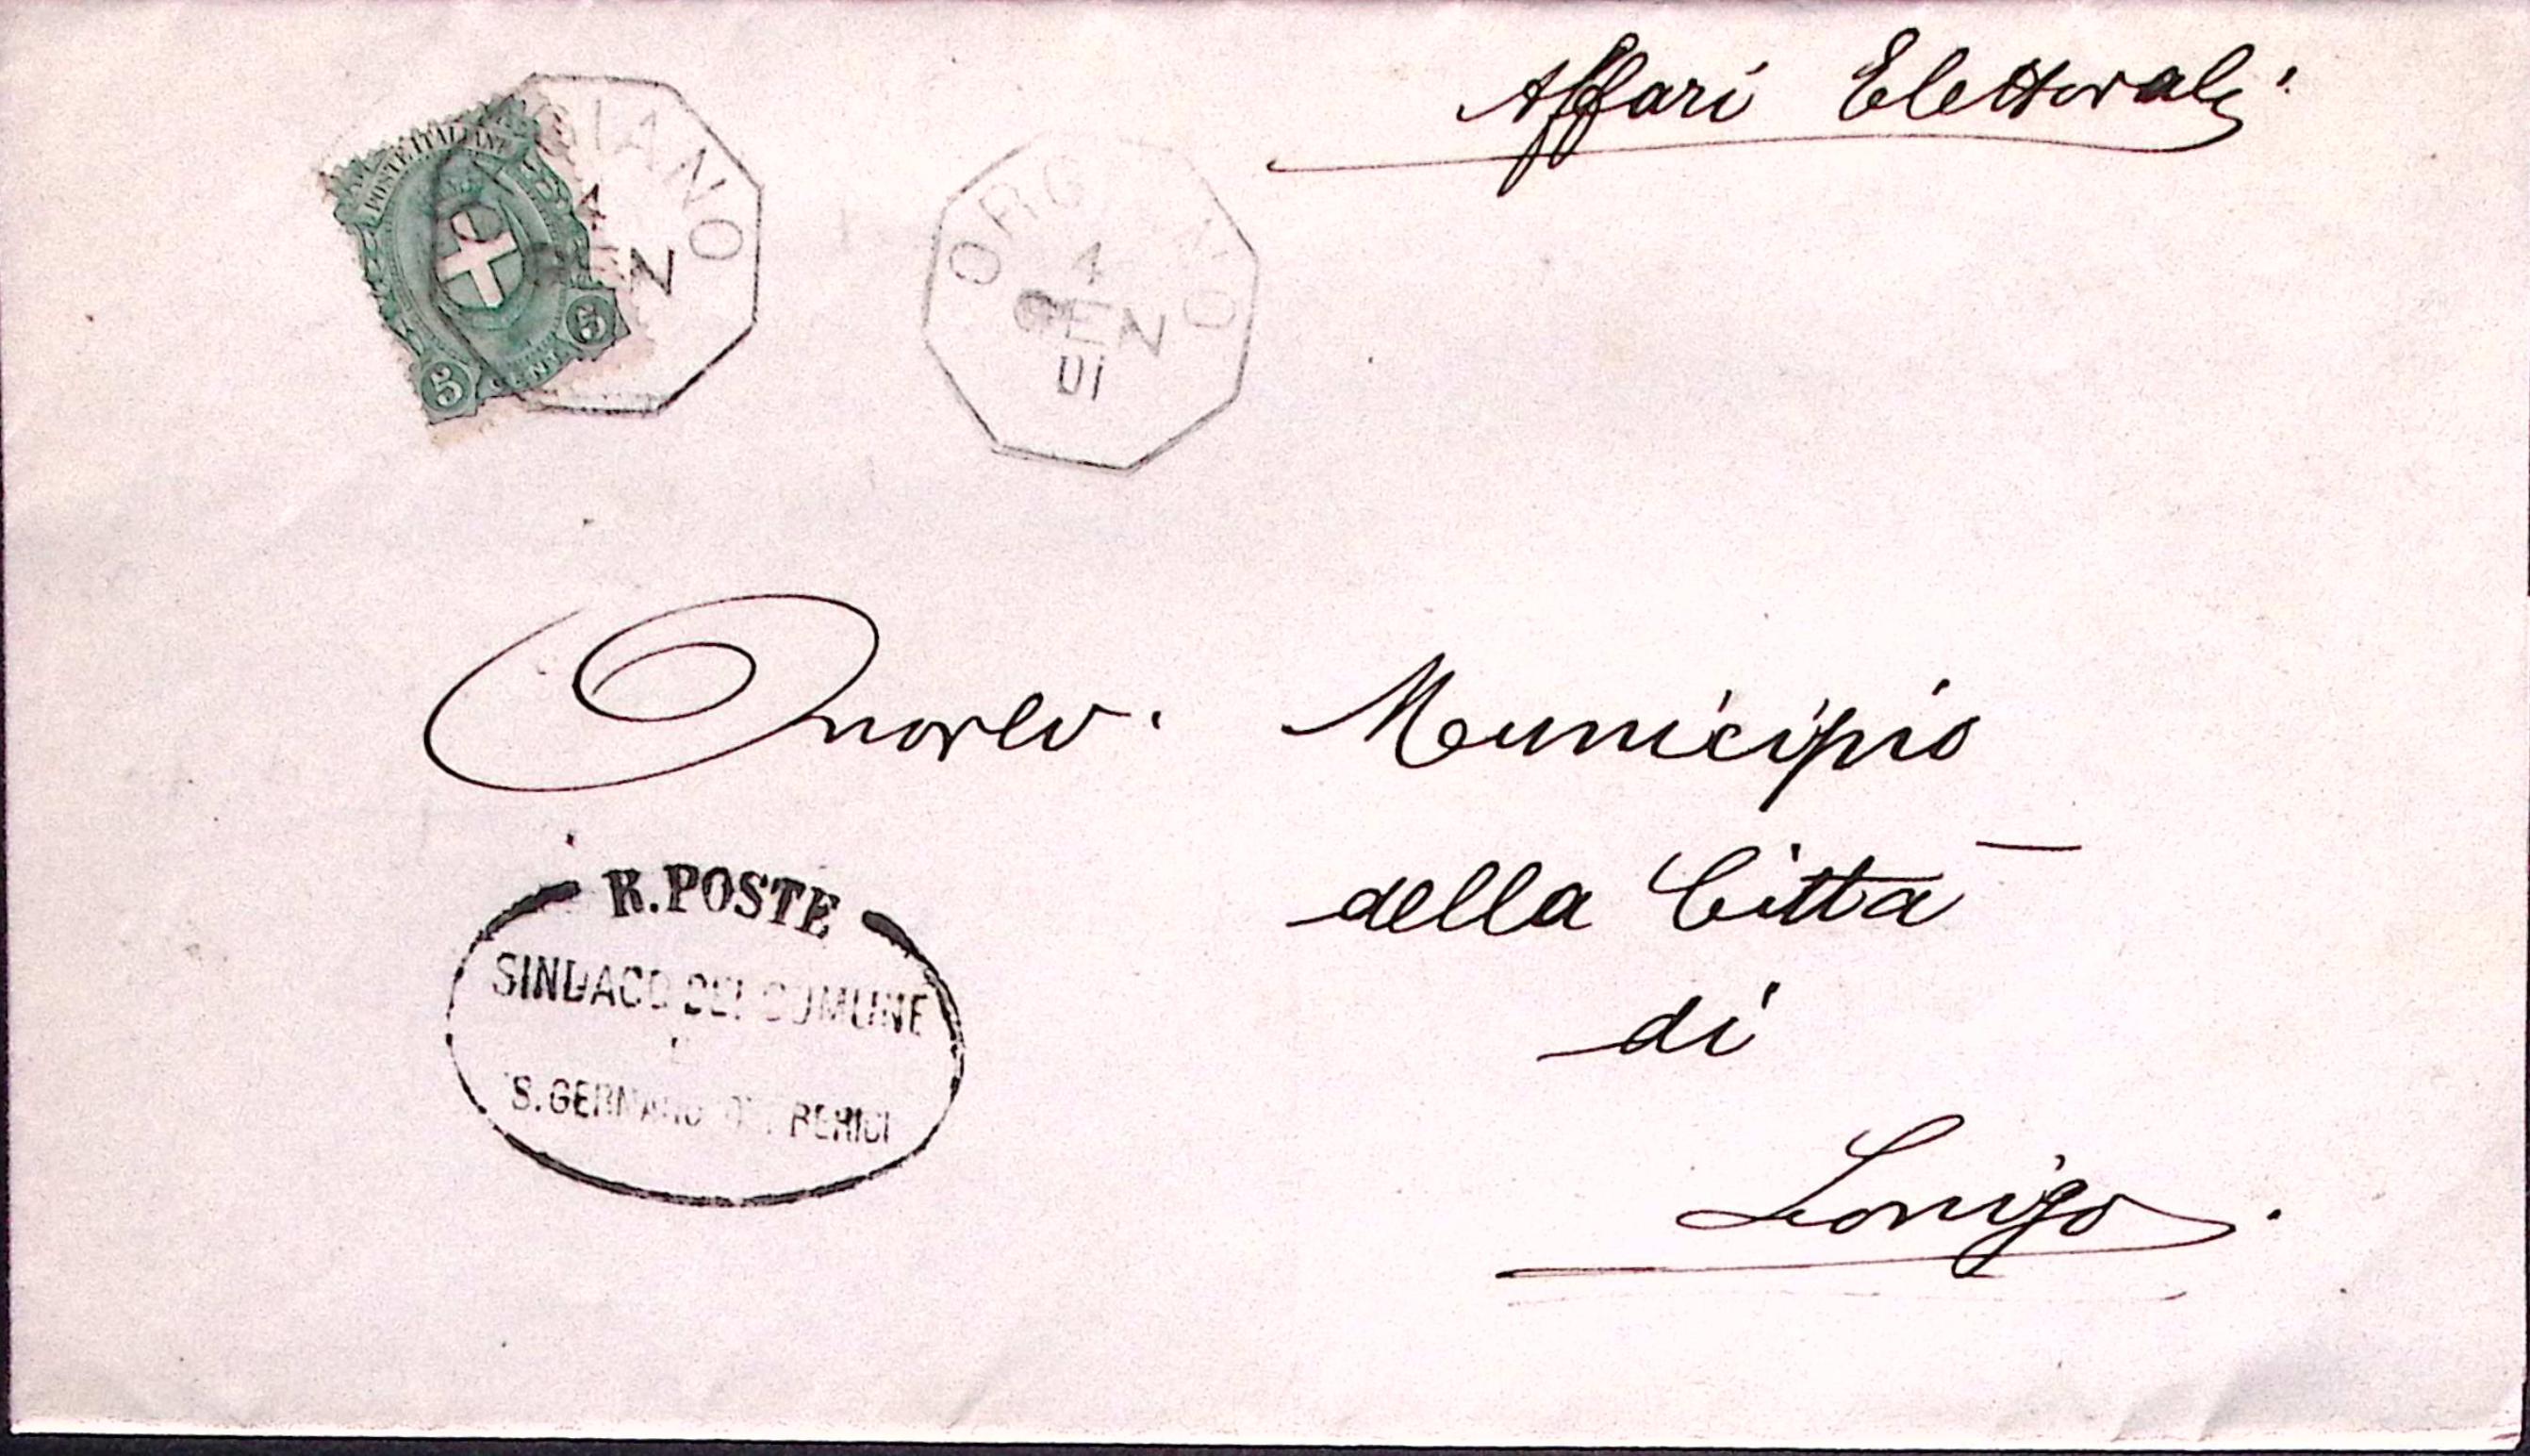 Affari Elettorali
POSTE ITALIANE
5 CENT. 5
4
GEN
ORG NO
4
GEN
01
Onorev. Municipio
della Città
di
Lonigo.
R. POSTE
SINDACO DEL COMUNE
S. GERMANO DEI BERICI